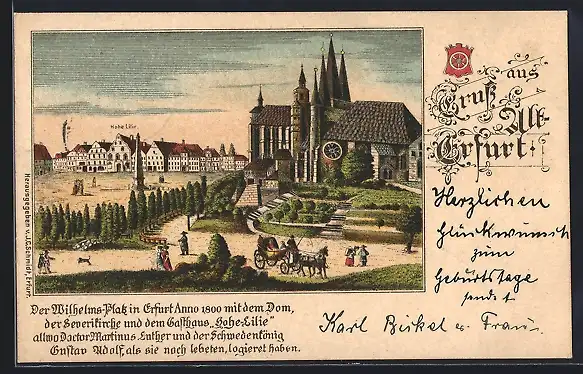 Hohe Lilie.
Gruß aus
Alt-
Erfurt.
Herausgegeben v. J.C. Schmidt, Erfurt.
Herzlichen
Glückwunsch
zum
Geburtstage
sendet
Karl Birkel u. Frau.
Der Wilhelms-Platz in Erfurt Anno 1800 mit dem Dom,
der Severikirche und dem Gasthaus „Hohe-Lilie"
allwo Doctor Martinus Luther und der Schwedenkönig
Gustav Adolf, als sie noch lebeten, logieret haben.